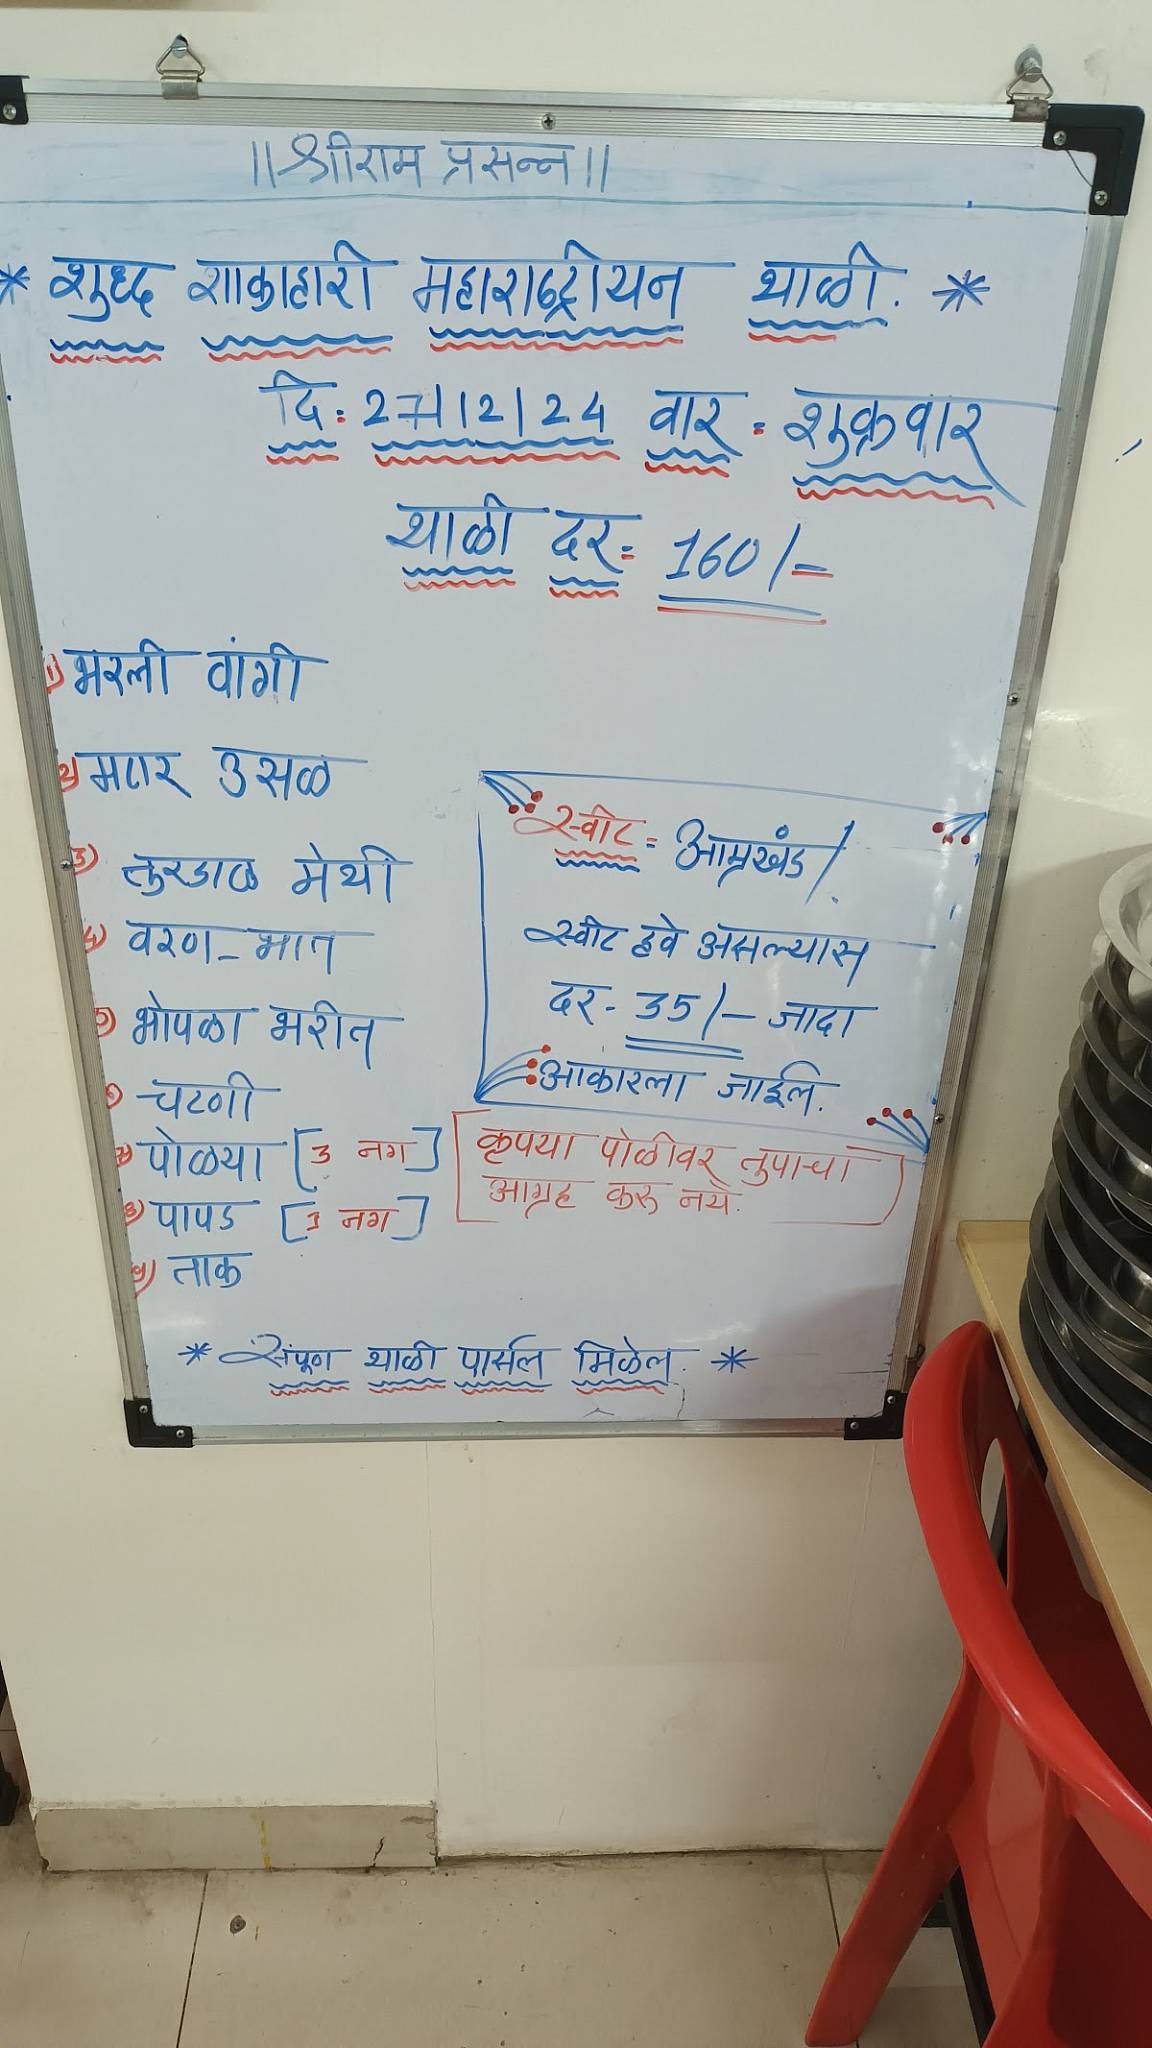 ||श्रीराम प्रसन्न||
* शुध्द शाकाहारी महाराष्ट्रीयन थाळी. *
दि: 27/12/24 वार : शुक्रवार
थाळी दर : 160/-
१) भरली वांगी
२) मटार उसळ
३) तुरडाळ मेथी
४) वरण-भात
५) भोपळा भरीत
६) चटणी
७) पोळ्या [3 नग]
८) पापड [1 नग]
९) ताक
स्वीट = आम्रखंड/.
स्वीट हवे असल्यास
दर - 35/- जादा
आकारला जाईल.
कृपया पोळीवर तुपाचा
आग्रह करू नये.
* संपूण थाळी पार्सल मिळेल. *